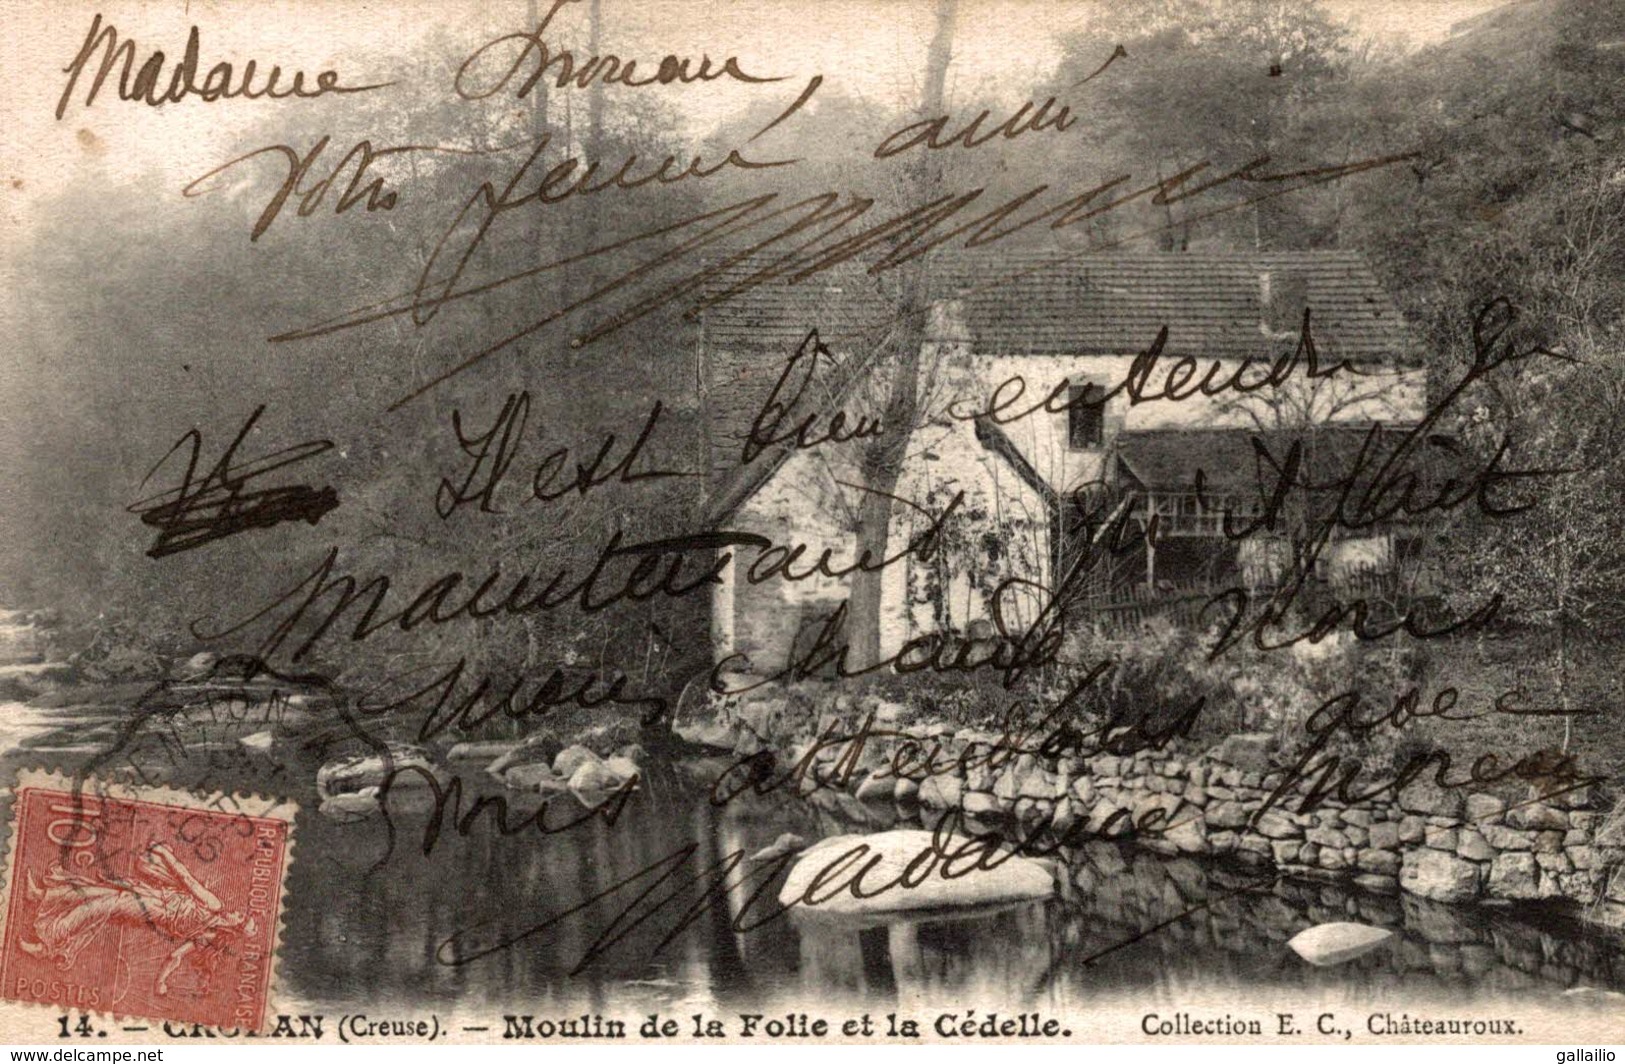 Madame Moreau,
Votre fermé ami
Il est bien entendu que
maintenant qu'il fait
moins chaud, nous
vous attendons avec
Madame Moreau
10c
REPUBLIQUE FRANÇAISE
POSTES
14. — CROZAN (Creuse). — Moulin de la Folie et la Cédelle. Collection E. C., Châteauroux.
www.delcampe.net
gallailio